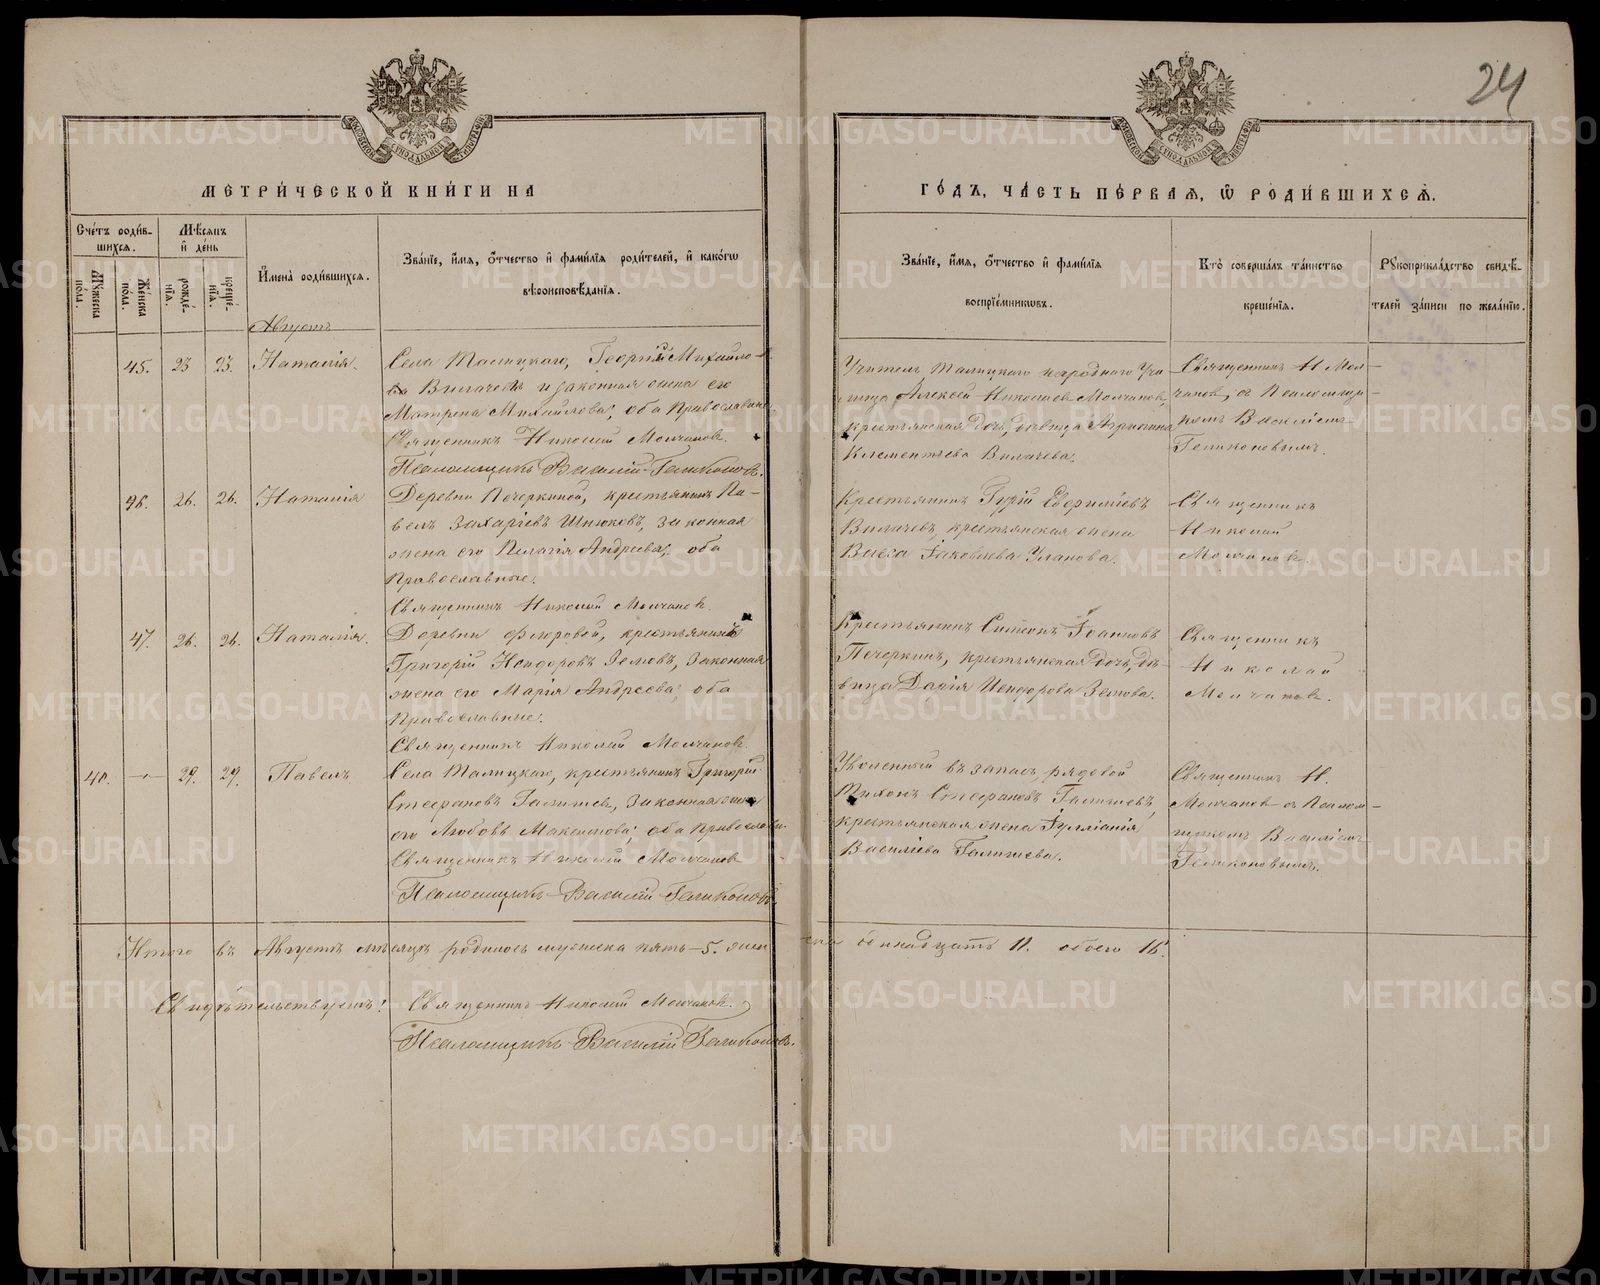 24
МЕТРИЧЕСКОЙ КНИГИ НА
ГОДЪ, ЧАСТЬ ПЕРВАЯ, Ѿ РОДИВШИХСЯ.
Счетъ родив-
шихся.
Мѣсяцъ
и день
Мужеска пола.
Женска пола.
рожде-
нія.
креще-
нія.
Имена родившихся.
Званіе, имя, отчество и фамилія родителей, и какогѡ
вѣроисповѣданія.
Званіе, имя, отчество и фамилія
воспріемниковъ.
Кто совершалъ таинство
крещенія.
Рукоприкладство свидѣ-
телей записи по желанію.
Августъ
45. 23 23. Наталія.
Села Талицкаго, Георгій Михайло-
въ Вилачевъ и законная жена его
Матрена Михайлова, оба православные
Священникъ Николай Молчановъ.
Псаломщикъ Василій Геликоновъ.
Учитель Талицкаго народнаго Учи-
лища Алексѣй Николаевъ Молчановъ,
крестьянская дочь, дѣвица
Климентьева Вилачева.
Священникъ Н Мол-
чановъ, съ Псаломщи-
комъ Василіемъ
Геликоновымъ.
46. 26. 26. Наталія
Деревни Печеркиной, крестьянинъ Па-
велъ Захаріевъ законная
жена его Пелагія Андреева, оба
православные.
Священникъ Николай Молчановъ.
Крестьянинъ Гурій
Вилачевъ, крестьянская жена
Іаковлева
Священникъ
Николай
Молчановъ.
47. 26. 26. Наталія.
Деревни крестьянинъ
Григорій Земовъ, законная
жена его Марія Андреева, оба
православные.
Священникъ Николай Молчановъ.
Крестьянинъ Симеонъ Іоанновъ
Печеркинъ, крестьянская дочь, дѣ-
вица Дарія Исидорова Земова.
Священникъ
Николай
Молчановъ.
48. 29. 29. Павелъ
Села Талицкаго, крестьянинъ Григорій
Стефановъ законная жена
его Любовь Максимова, оба православн.
Священникъ Николай Молчановъ
Псаломщикъ Василій Геликоновъ
Уволенный въ запасъ рядовой
Тихонъ Стефановъ
крестьянская жена Іуліанія
Василіева
Священникъ Н.
Молчановъ съ Псалом-
щикомъ Василіемъ
Геликоновымъ.
Итого въ Августѣ мѣсяцѣ родилось мужеска пять – 5. женска одиннадцать 11. обоего 16.
Свидѣтельствуемъ: Священникъ Николай Молчановъ.
Псаломщикъ Василій Геликоновъ.
METRIKI.GASO-URAL.RU